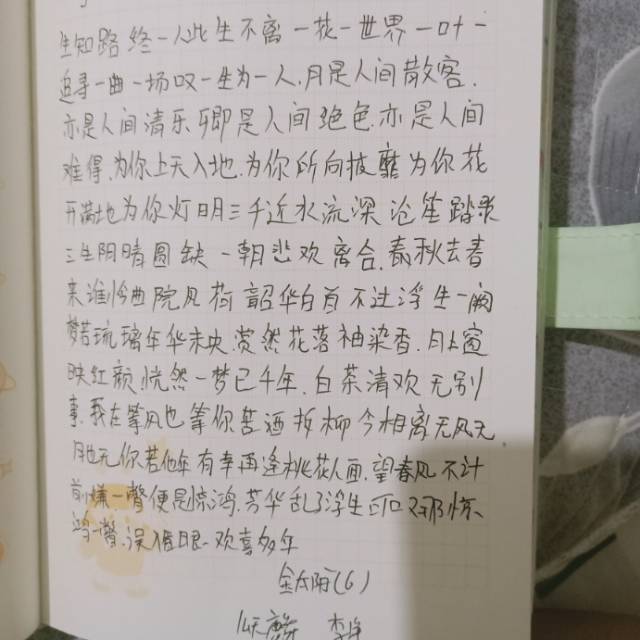 生知路终一人此生不离一花一世界一叶一
追寻一曲一场叹一生为一人,月是人间散客.
亦是人间清乐.卿是人间绝色.亦是人间
难得.为你上天入地.为你所向披靡为你花
开满地为你灯明三千近水流深沧笙踏歌
三生阴晴圆缺一朝悲欢离合.春秋去春
来谁怜曲院风荷韶华白首不过浮生一阙
梦若琉璃年华未央.赏然花落袖染香.月上窗
映红颜恍然一梦已千年.白茶清欢无别
事.我在等风也等你苦酒折柳今相离无风无
月也无你若他年有幸再逢桃花人面.望春风不计
前嫌一瞥便是惊鸿.芳华乱了浮生可只那惊
鸿一瞥.深值眼欢喜多年
金太阳(6)